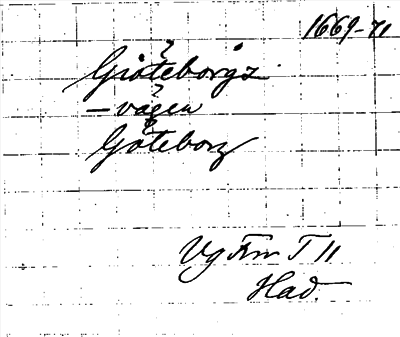 1669-71
Giöteborgz
-vägen
Göteborg
Vg Fm T II
Had.